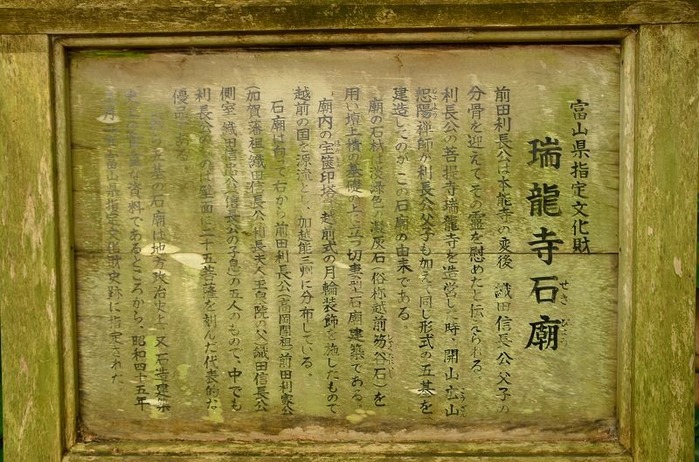 富山県指定文化財
瑞龍寺石廟
せき びょう
前田利長公は本能寺の変後 織田信長公父子の
分骨を迎えてその霊を慰めたと伝えられる。
利長公の菩提寺瑞龍寺を造営した時、開山広山
恕陽禅師が利長公父子も加えて同じ形式の五基を
建造したのがこの石廟の由来である。
廟の石材は淡緑色の凝灰石(俗称越前笏谷石)を
用い壇上積の基礎の上に立つ切妻型石廟建築である
廟内の宝篋印塔は越前式の月輪装飾を施したもので
越前の国を源流とし、加越能三州に分布している。
石廟は向って右から前田利長公(高岡開祖)前田利家公
(加賀藩祖)織田信長公 信長夫人玉泉院の父織田信長公
側室 織田信忠公(信長公の子息)の五人のもので、中でも
利長公のものは壁面に二十五菩薩を刻んだ代表的な
優品である。
五基の石廟は地方政治史上 又石造建築
な資料であるところから、昭和四十五年
富山県指定文化財史跡に指定された